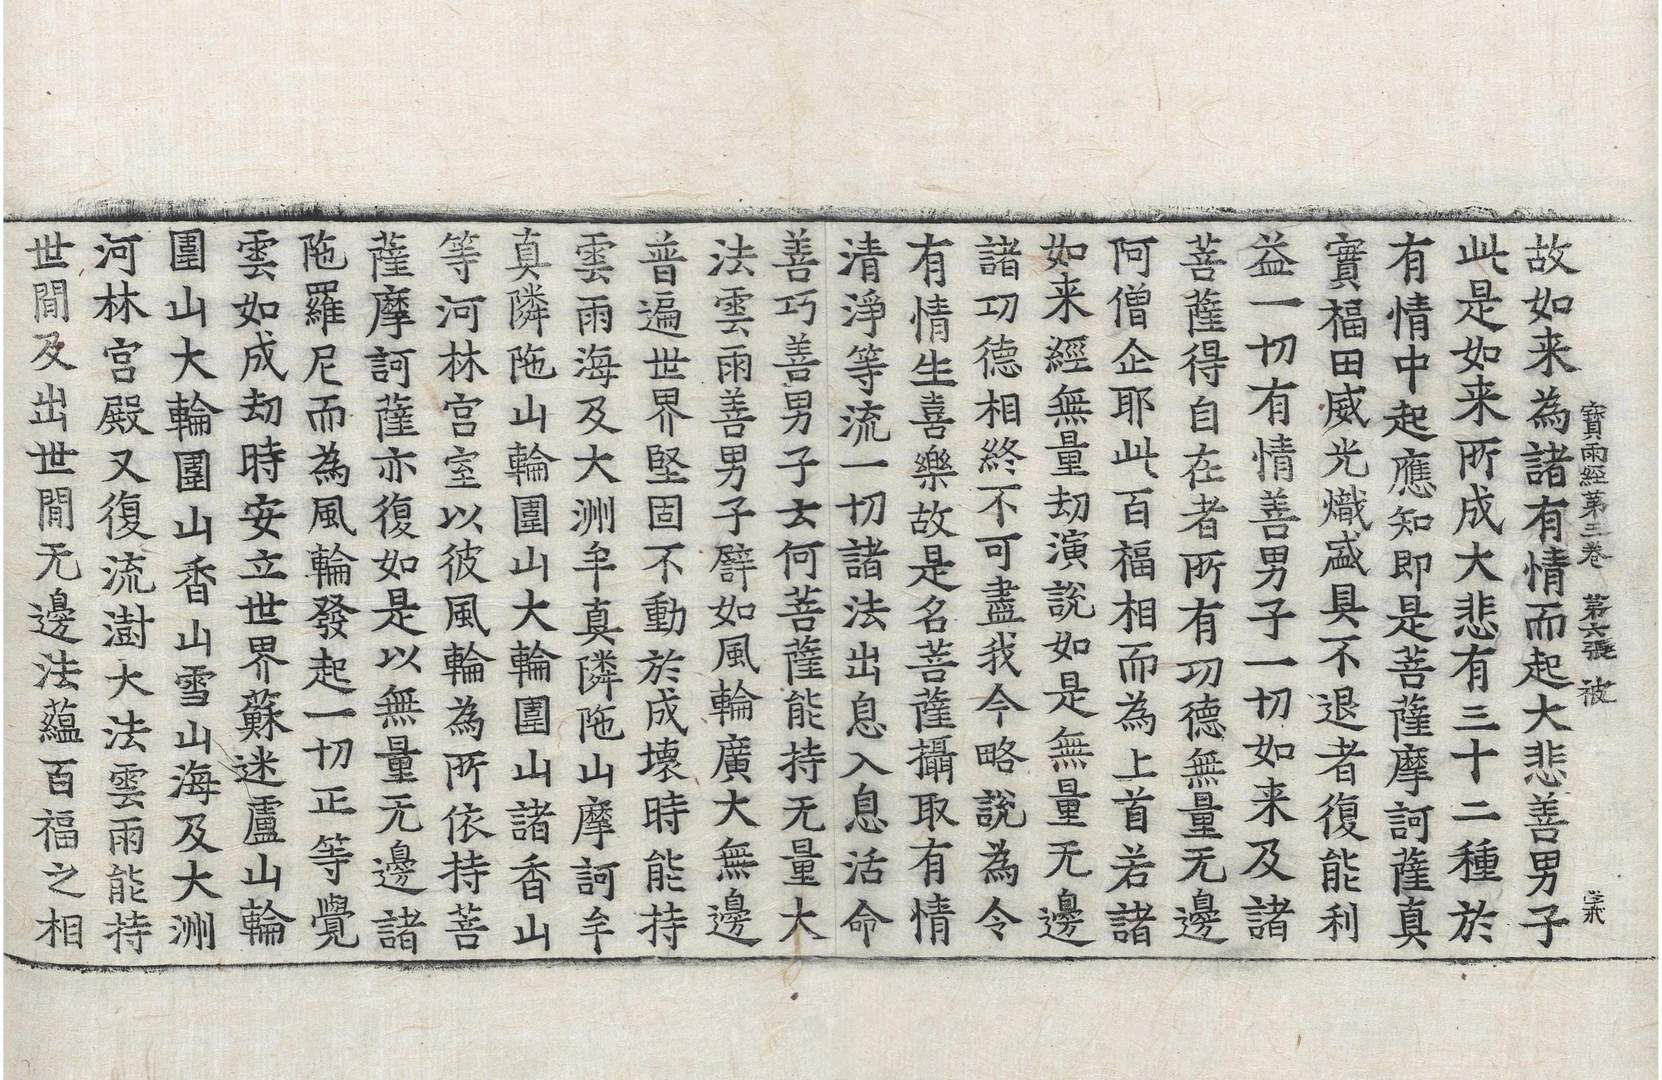 寶雨經第三卷　第六張　被
故如来為諸有情而起大悲善男子
此是如来所成大悲有三十二種於
有情中起應知即是菩薩摩訶薩真
實福田威光熾盛具不退者復能利
益一切有情善男子一切如来及諸
菩薩得自在者所有功德無量无邊
阿僧企耶此百福相而為上首若諸
如来經無量劫演說如是無量无邊
諸功德相終不可盡我今略說為令
有情生喜樂故是名菩薩攝取有情
清淨等流一切諸法出息入息活命
善巧善男子云何菩薩能持无量大
法雲雨善男子譬如風輪廣大無邊
普遍世界堅固不動於成壞時能持
雲雨海及大洲牟真隣陁山摩訶牟
真隣陁山輪圍山大輪圍山諸香山
等河林宫室以彼風輪為所依持菩
薩摩訶薩亦復如是以無量无邊諸
陁羅尼而為風輪發起一切正等覺
雲如成劫時安立世界蘇迷盧山輪
圍山大輪圍山香山雪山海及大洲
河林宫殿又復流澍大法雲雨能持
世間及出世間无邊法蘊百福之相